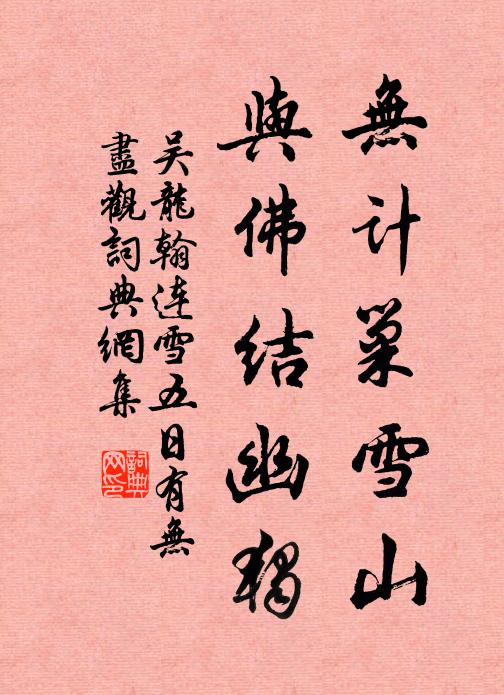 無计巢雪山
與佛结幽獨
吴龍翰连雪五日有無
盡觀詞典網集
詞典网印